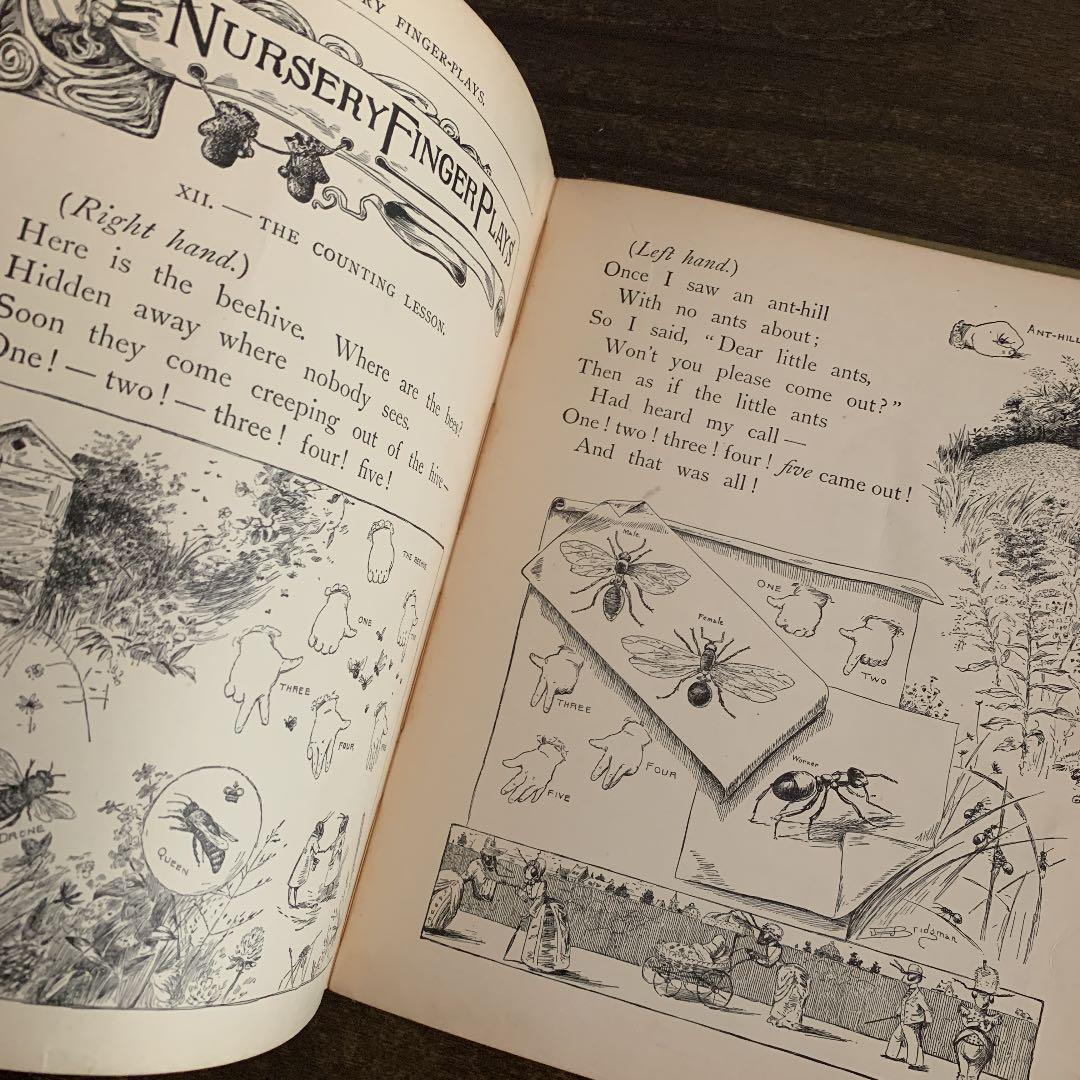 RY FINGER-PLAYS.
NURSERY FINGER PLAYS
XII. — THE COUNTING LESSON.
(Right hand.)
Here is the beehive. Where are the bees?
Hidden away where nobody sees.
Soon they come creeping out of the hive—
One! — two! — three! four! five!
THE BEEHIVE
ONE
THREE
FOUR
DRONE
QUEEN
(Left hand.)
Once I saw an ant-hill
With no ants about;
So I said, “Dear little ants,
Won't you please come out?”
Then as if the little ants
Had heard my call —
One! two! three! four! five came out!
And that was all!
ANT-HILL
Male
Female
ONE
TWO
THREE
FOUR
FIVE
Worker
Bridgman